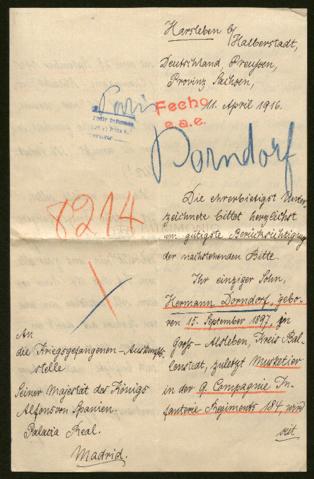 Harsleben b/
Halberstadt,
Deutschland Preußen,
Provinz Sachsen,
11. April 1916.
Paris
Fecho
e.a.e.
Dorndorf
8214
Die ehrerbietigst Unter-
zeichnete bittet herzlichst
um gütigste Berücksichtigung
der nachstehenden Bitte.
Ihr einziger Sohn,
Hermann Dorndorf, gebo-
ren 15. September 1897, zu
Groß-Alsleben, Kreis Bal-
lenstedt, zuletzt Musketier
in der 9. Compagnie In-
fanterie Regiments 184 wird
seit
An
die Kriegsgefangenen-Auskunfts-
stelle
Seiner Majestät des Königs
Alfons von Spanien.
Palacia Real.
Madrid.